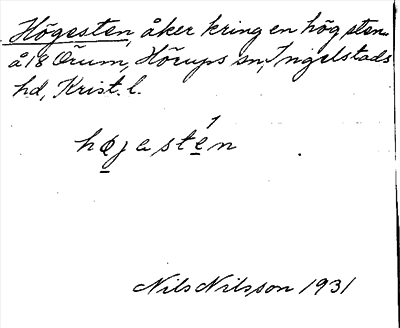 Högesten, åker kring en hög sten
å 18 Örum, Hörups sn, Ingelstads
hd, Krist. l.
højasten
Nils Nilsson 1931